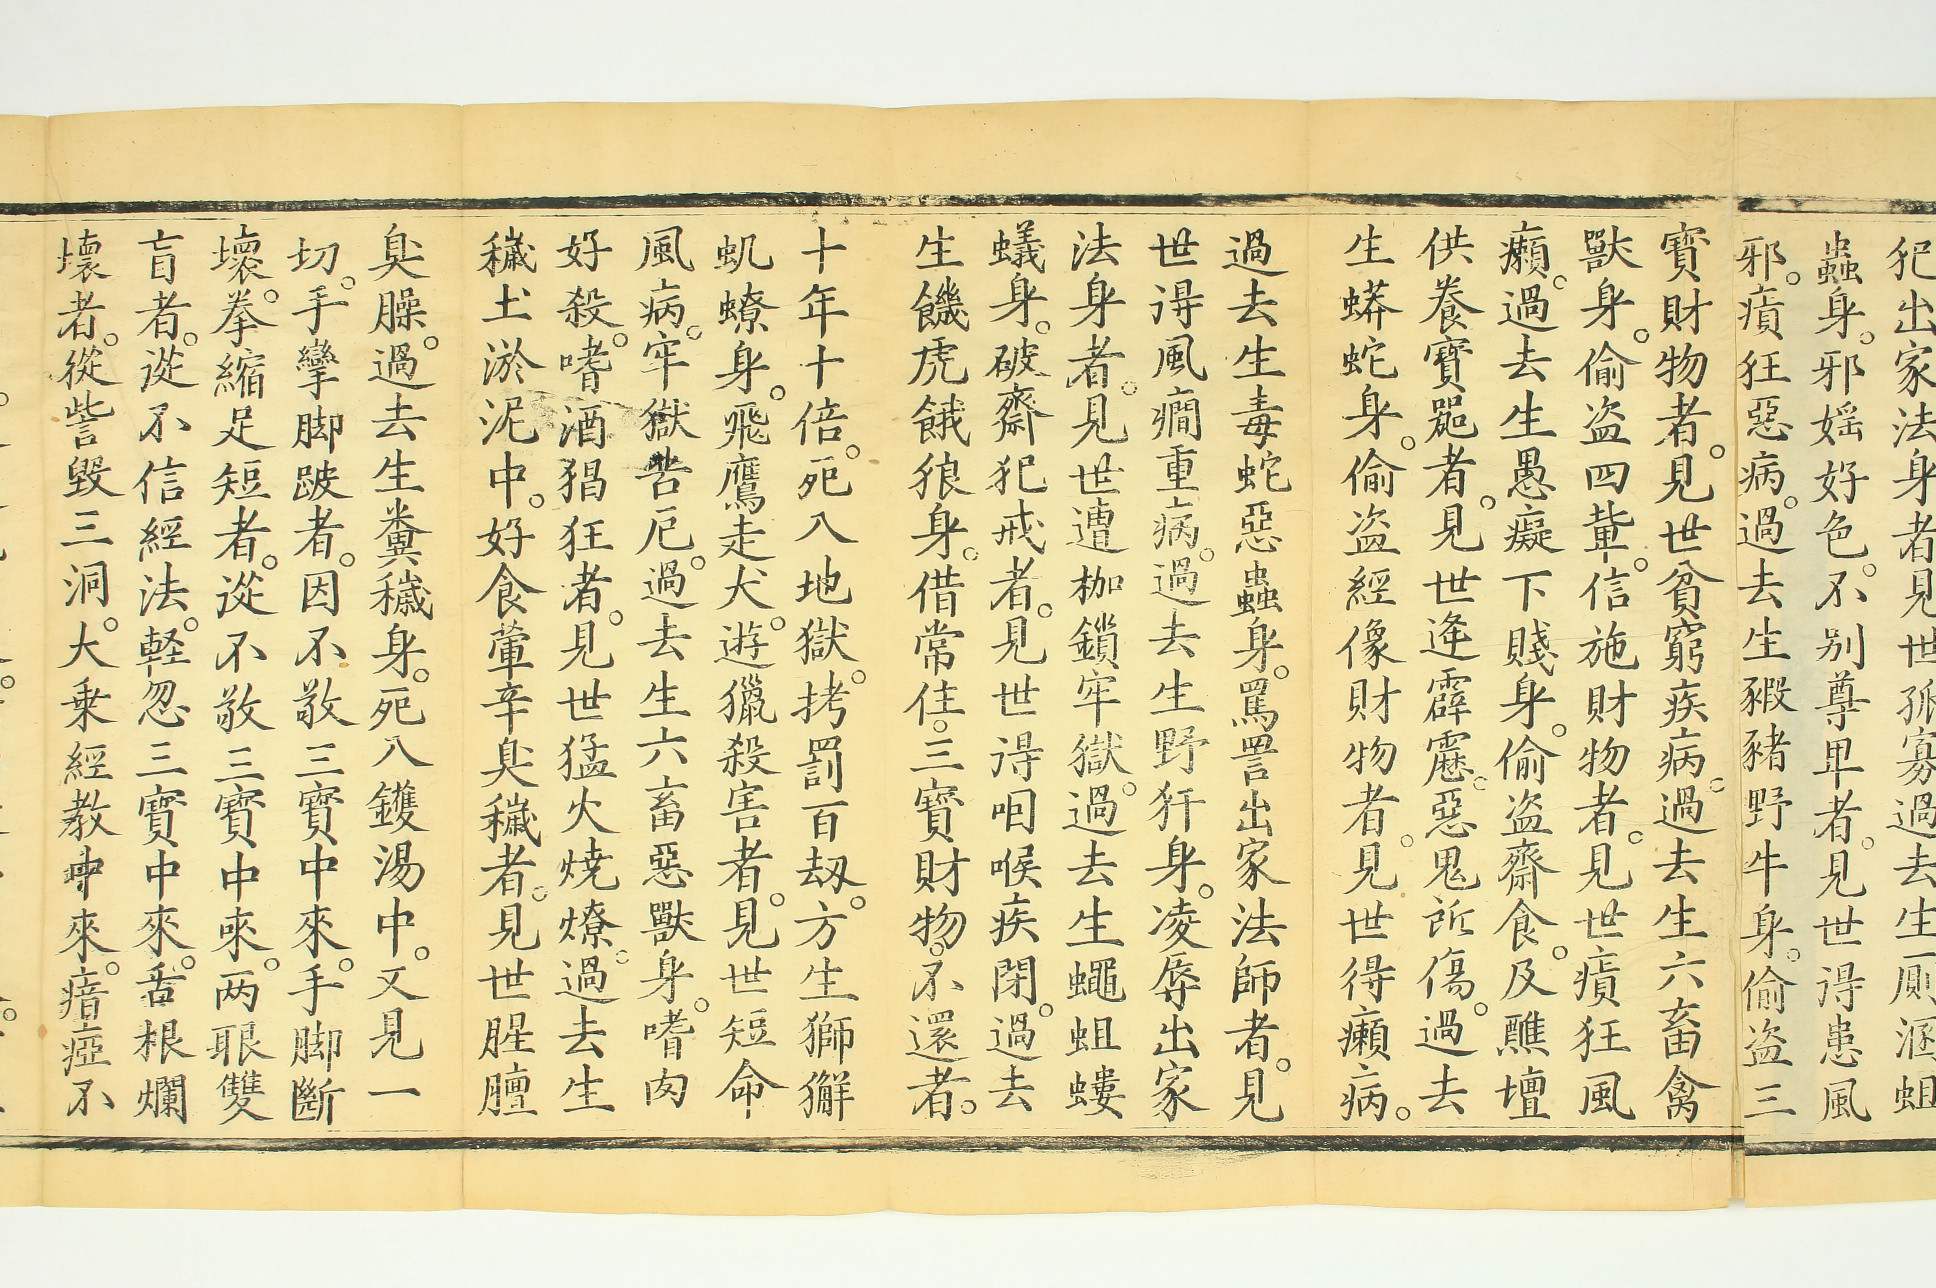 犯出家法身者見世孤寡過去生厠溷蛆
蟲身。邪婬好色。不别尊卑者。見世得患風
邪。癀狂惡病。過去生豭豬野牛身。偷盗三
寳財物者。見世貧窮疾病。過去生六畜禽
獸身。偷盗四輩。信施財物者。見世癀狂風
癩。過去生愚癡下賤身。偷盗齋食。及醮壇
供養寳噐者。見世逄霹靂。惡鬼所傷。過去
生蟒蛇身。偷盗經像財物者。見世得癩病。
過去生毒蛇惡蟲身。罵詈出家法師者。見
世得風癎重病。過去生野犴身。凌辱出家
法身者。見世遭枷鎖牢獄。過去生蠅蛆螻
蟻身。破齋犯戒者。見世得咽喉疾閉。過去
生饑虎餓狼身。借常住。三寳財物。不還者。
十年十倍。死入地獄。拷罰百劫。方生獅獬
虮蟟身。飛鷹走犬。遊獵殺害者。見世短命
風病。牢獄苦厄。過去生六畜惡獸身。嗜肉
好殺。嗜酒猖狂者。見世猛火燒燎。過去生
穢土淤泥中。好食葷辛臭穢者。見世腥膻
臭臊。過去生糞穢身。死入鑊湯中。又見一
切。手攣脚跛者。因不敬三寳中來。手脚斷
壞。拳縮足短者。從不敬三寳中來。两眼雙
盲者。從不信經法。軽忽三寳中來。舌根爛
壞者。從訾毁三洞。大乗經教中來。瘖瘂不